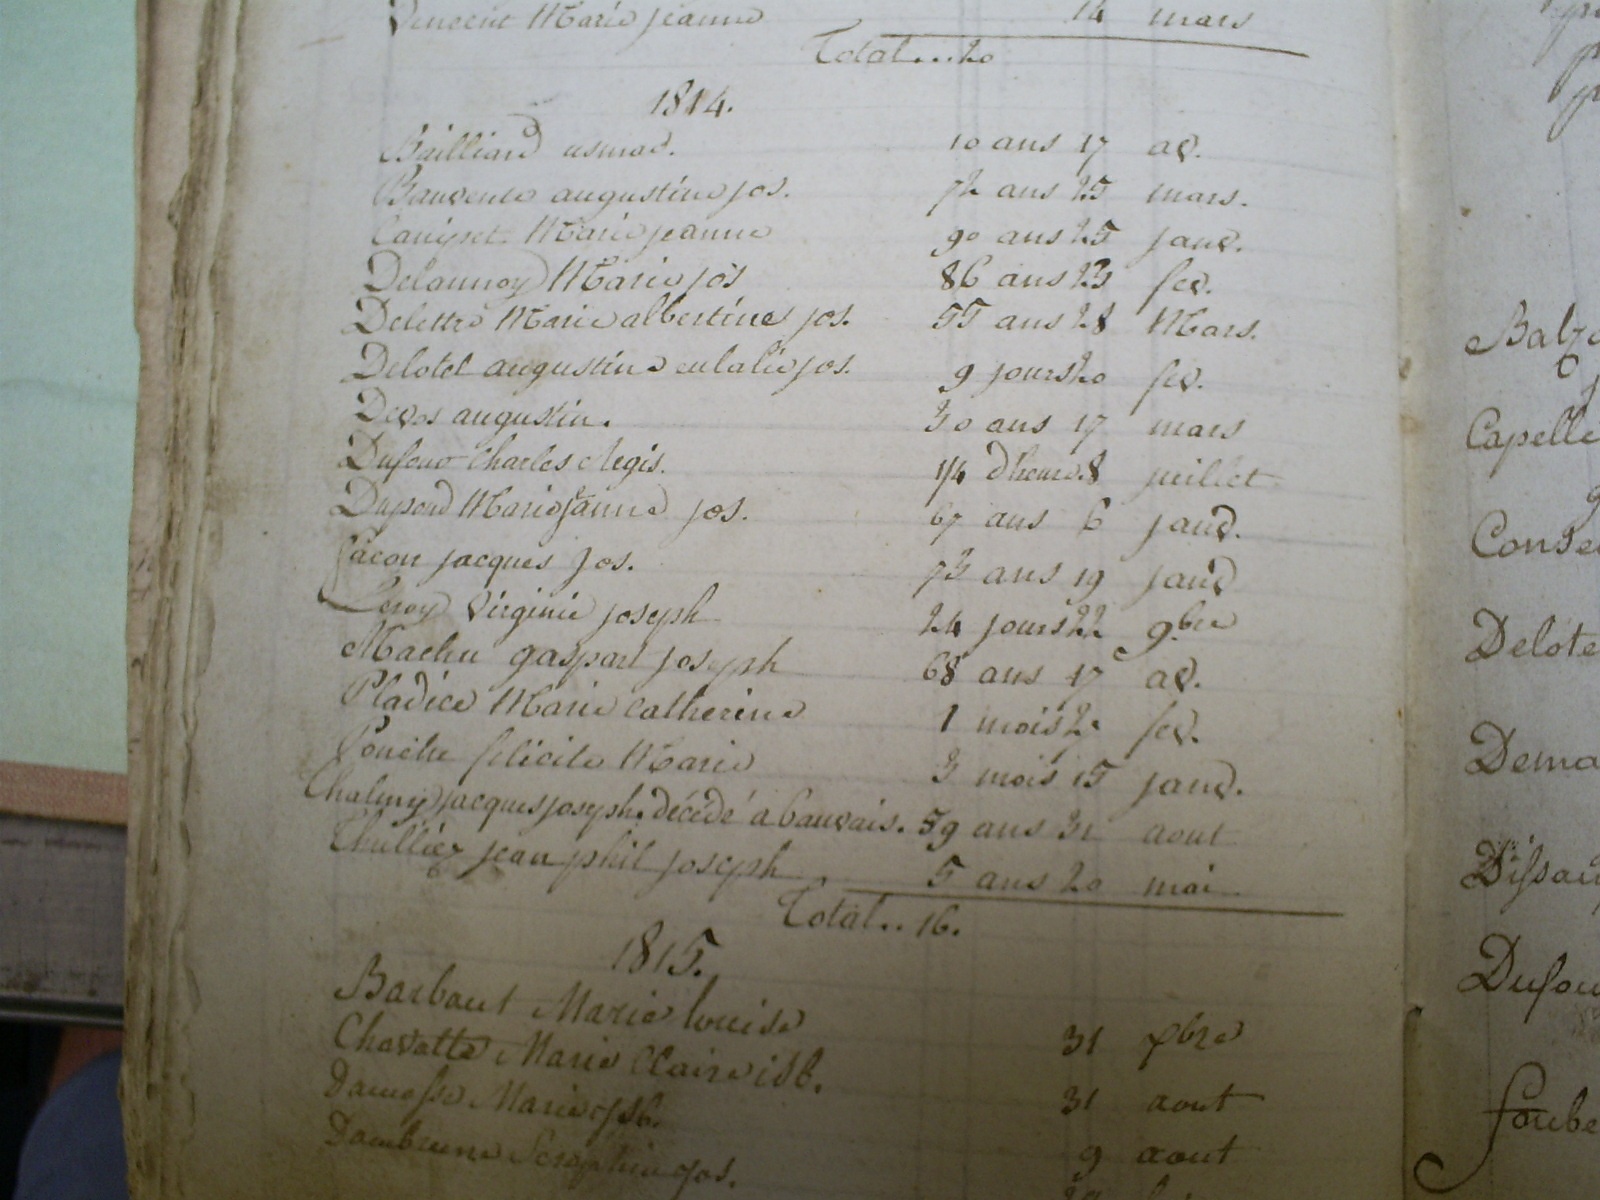 Vincent Marie jeanne 14 mars
Total...20
1814.
Bailliard 10 ans 17 av.
augustine jos. 72 ans 25 mars.
Marie jeanne 90 ans 25 janv.
Delannoy Marie jos 86 ans 23 fev.
Delettre Marie albertine jos. 55 ans 28 Mars.
Delotel augustine eulalie jos. 9 jours 20 fev.
Devos augustin. 30 ans 17 mars
Charles Regis. 1/4 dheure 8 juillet
Dupond Marie janne jos. 67 ans 6 janv.
Lacon jacques jos. 73 ans 19 janv
Leroy virginie joseph 24 jours 22 9.bre
Machu gaspart joseph 68 ans 17 av.
Pladice Marie Catherine 1 mois 2. fev.
felicite Marie 3 mois 15 janv.
jacques joseph. décédé a bauvais. 59 ans 31 aout
Thulliez jean phil joseph 5 ans 20 mai
Total.. 16.
1815.
Barbaut Marie louise 31 xbre
Chavatte Marie Claire isb. 31 aout
Marie 9 aout
jos.
Balza
Capelle
Conse
Delote
Dema
Dissau
Dufou
foube